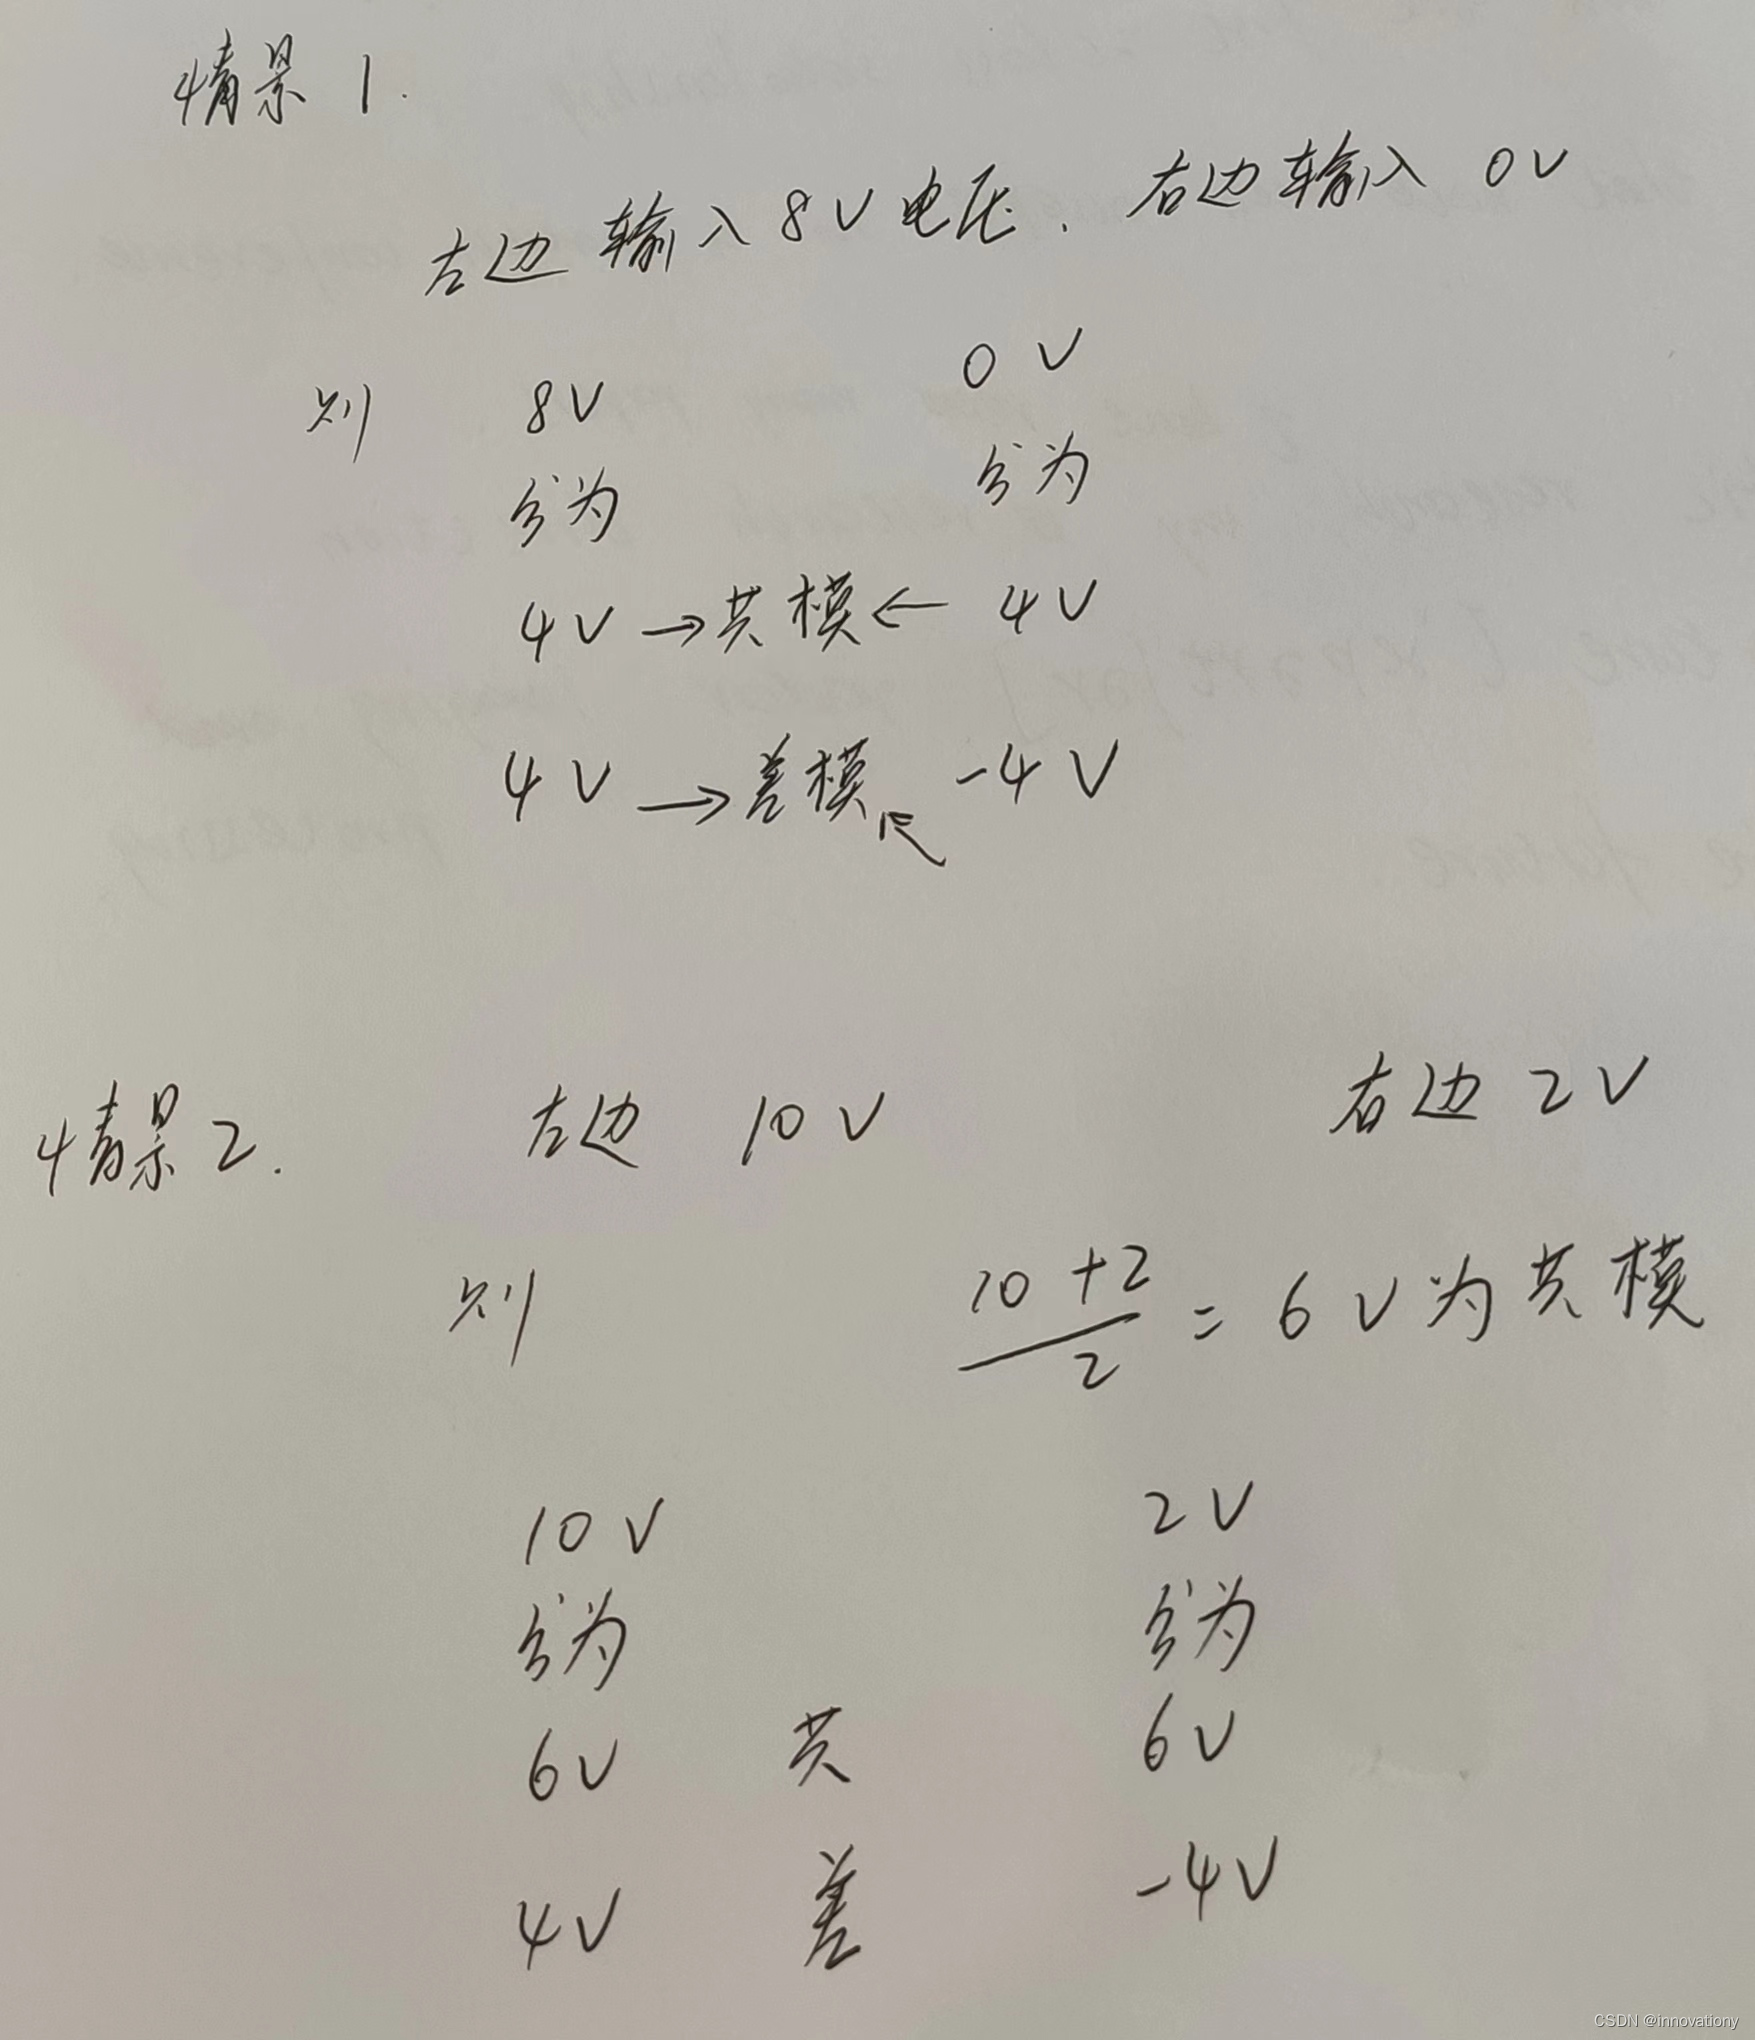 情景 1.
左边输入8V电压. 右边输入 0V
则 8V 0V
分为 分为
4V → 共模 ← 4V
4V → 差模 ↖ -4V
情景2. 左边 10V 右边 2V
则 10+2/2 = 6V为共模
10V 2V
分为 分为
6V 共 6V
4V 差 -4V
CSDN @innovationy